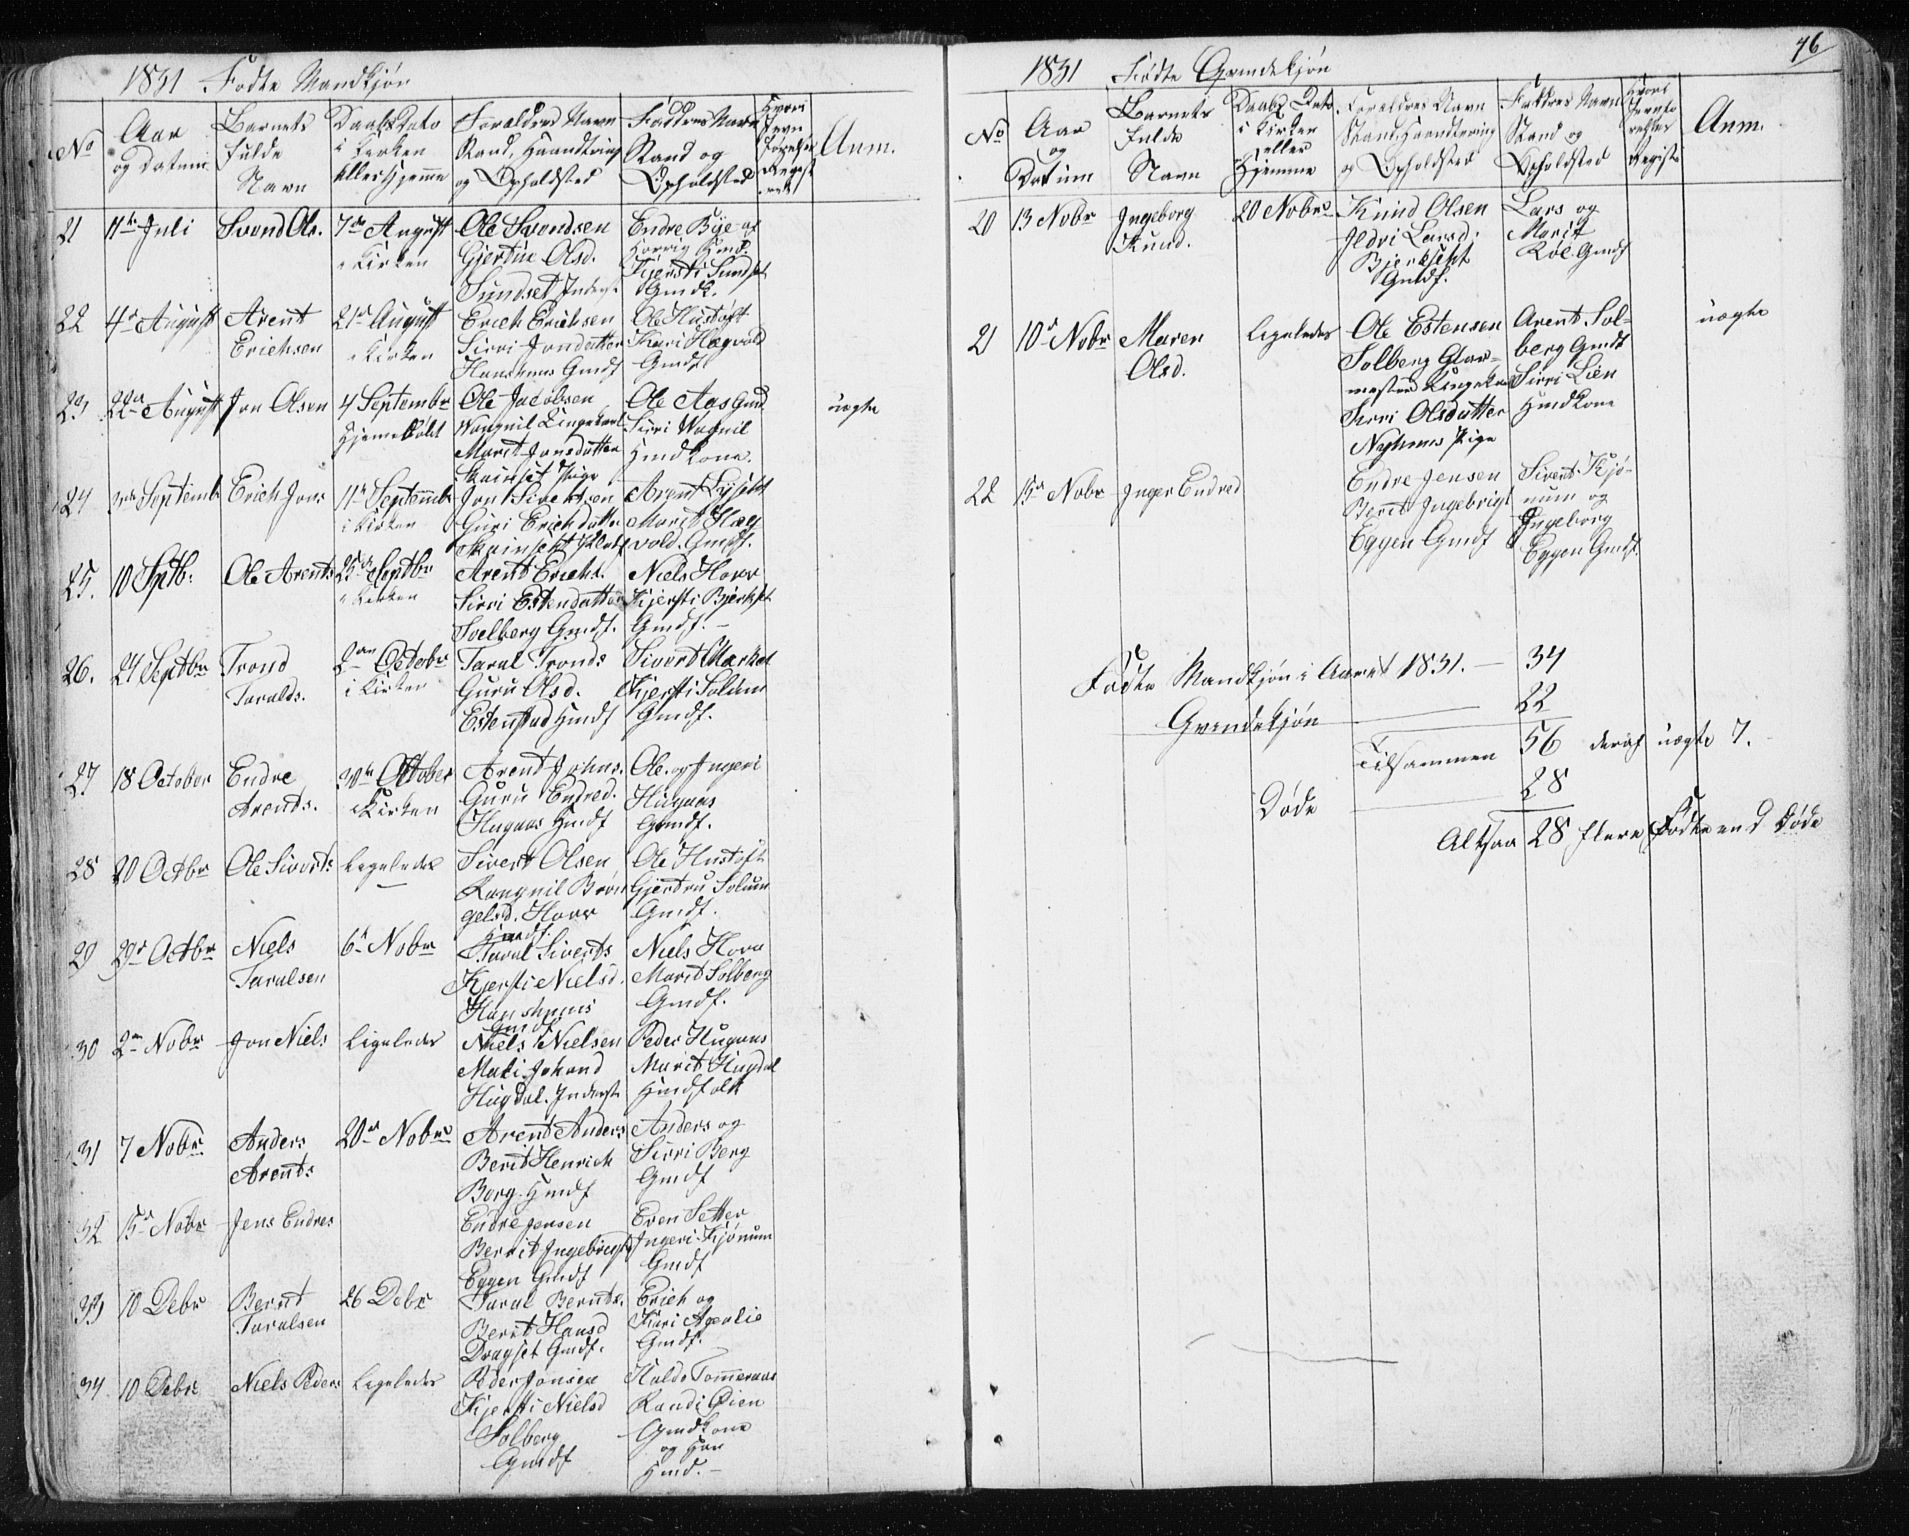 1831 Fødte Mandkjøn
No
Aar
og Datum
Barnets
fulde
Navn
Daabs Dato
i Kirken
eller Hjemme
Forældres Navn
Stand, Haandtering
og Opholdsted
Faddres Navn
Stand og
Opholdsted
Anm.
21
11te Juli
Svend Ols.
7de August
i Kirken
Ole Svendsen
Gjertine Olsd.
Sundset Inderst
Endre Bye af
Kjersti Sundset
Gmdk.
22
4de August
Arent
Erichsen
21de August
i Kirken
Erich Erichsen
Sirri Jonsdatter
Hanshuus Gmdf
Ole Hustoft
Kari Hægvold
Gmdf
23
22de August
Jon Olsen
4 Septembr
Hjemmedøbt
Ole Jacobsen
Wognil Ungekarl
Marit Jonsdatter
Skeinset Pige
Ole Aas Gmd
Sirri Wognil
Hmdkone.
uægte
24
3de Septembr
Erich Jons
11te Septembr
i Kirken
Jon Sivertsen
Guri Erichdatter
Skeinset
Arent Lysset
Marit Hæg
vold. Gmdf.
25.
10 Septb:
Ole Arents
25de Septbr
i Kirken
Arent Erichs.
Sirri Estendatter
Soelberg Gmdf.
Niels Horr
Kjersti Bjerkset
Gmdf. -
26.
24 Septbr
Trond
Taralds.
2den Octobr
i Kirken
Taral Tronds
Guru Olsd.
Estenstad Hmdf
Sivert Merket
Kjersti Solum
Gmdf.
27
18 October
Endre
Arents.
30te October
i Kirken
Arent Johns.
Guru Endred.
Hugaas Hmdf
Ole og Ingeri
Hugaas
Gmdf.
28
20 Octbr
Ole Siverts
Ligeledes
Sivert Olsen
Rangnil Brøn
gelsd. Horr
Hmdf.
Ole Hustoft
Gjertru Solum
Gmdf.
29
29de Octbr
Niels
Taralsen
6te Nobr
Taral Siverts
Kjersti Nielsd.
Hanshuus
Gmdf
Niels Horr
Marit Solberg
Gmdf.
30
2den Nobr
Jon Niels
Ligeledes
Niels Nielsen
Mali Johand
Hugdal. Inderst
Peder Hugaas
Marit Hugdal
Hmdfolk
31
7 Nobr
Anders
Arents
20de Nobr
Arent Anders
Berit Henrich
Berg. Hmdf
Anders og
Sirri Berg
Gmdf
32
15de Nobr
Jens Endres
Endre Jensen
Berrit Ingebrigt
Eggen Gmdf
Even Setter
Ingeri Kjønum
Gmdf
33
10 Debr
Bernt
Taralsen
26 Debr
Taral Bernts.
Berit Hansd
Dragset Gmdf.
Erich og
Kari Agerlie
Gmdf.
34
10 Debr
Niels Peders
Ligeledes
Peder Jonsen
Kjersti Nielsd
Solberg
Gmdf
Halde Tommeraas
Randi Øien
Gmdkone
og Han
Hmd. -
76
1831 Fødte Qvindekjøn
No
Aar
og
Datum
Barnets
fulde
Navn
Daabs Dato
i Kirken
eller
Hjemme
Forældres Navn
Stand, Haandtering
og Opholdsted
Faddres Navn
Stand og
Opholdsted
Anm.
20
13 Nobr
Ingeborg
Knud.
20 Nobr
Knud Olsen
Ildri Larsd.
Bjerkset
Gmdf.
Lars og
Marit
Roe. Gmdf
21
10de Nobr
Maren
Olsd.
Ligeledes
Ole Estensen
Solberg Glar-
mester Ungekarl
Sirri Olsdatter
Nyhuus Pige
Arent Sol-
berg Gmdk
Sirri Lien
Hmdkone
uægte
22
15de Nobr
Inger Endred
Endre Jensen
Berit Ingebrigt
Eggen Gmdf
Sivert Kjø-
num og
Ingeborg
Eggen Gmdf.
Fødte Mandkjøn i Aaret 1831. - 34
Qvindekjøn 22
Tilsammen 56 deraf uægte 7.
Døde 28
Altsaa 28 flere Fødte end Døde